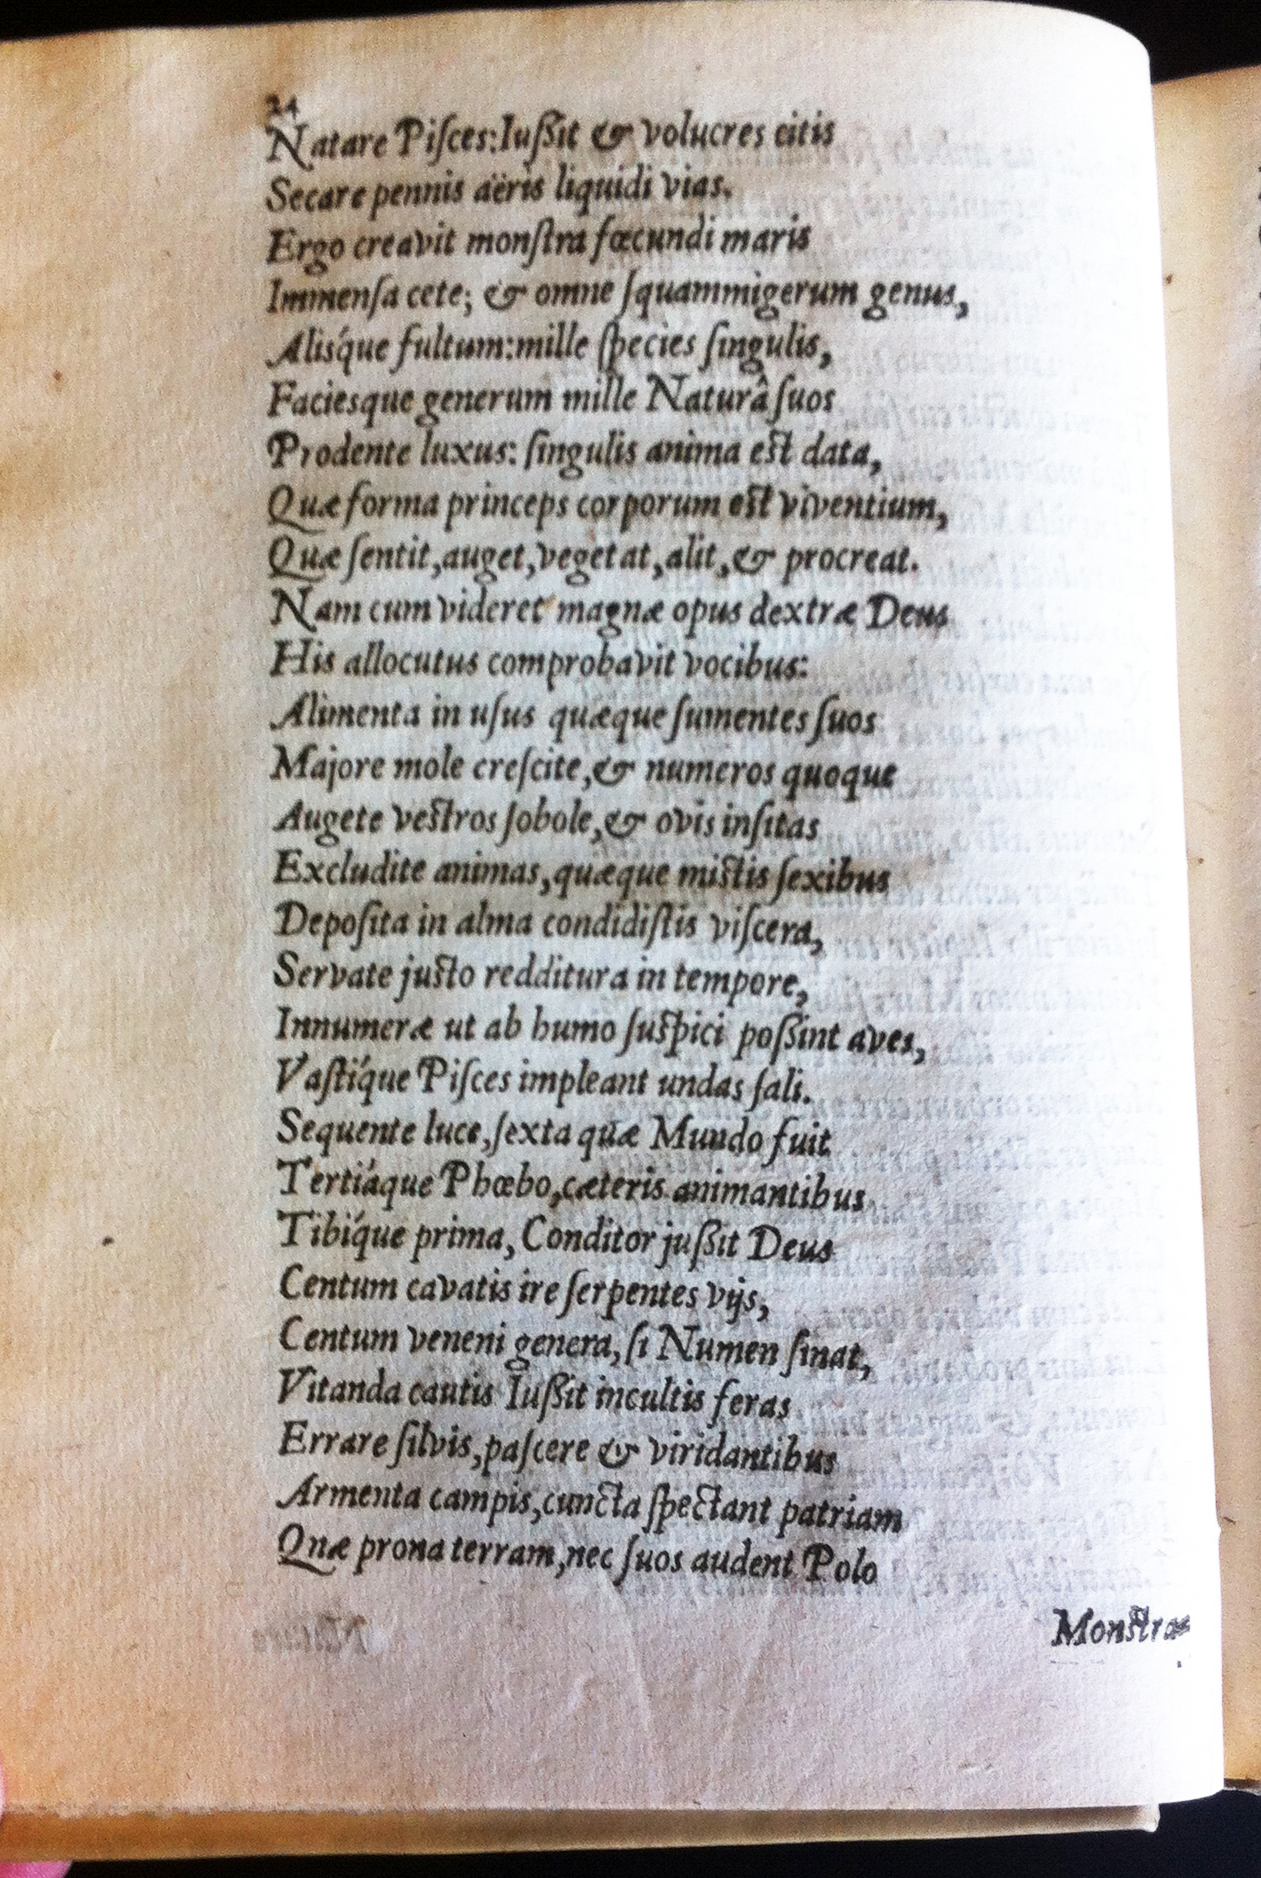 24
Natare Piſces:Iußit & volucres citis
Secare pennis aëris liquidi vias.
Ergo creavit monſtra fœcundi maris
Immenſa cete; & omne ſquammigerum genus,
Alisq́ue fultum:mille ſpecies ſingulis,
Faciesque generum mille Naturâ ſuos
Prodente luxus: ſingulis anima eſt data,
Quæ forma princeps corporum eſt viventium,
Quæ ſentit,auget,vegetat,alit,& procreat.
Nam cum videret magnæ opus dextræ Deus
His allocutus comprobavit vocibus:
Alimenta in uſus quæque ſumentes ſuos
Majore mole creſcite,& numeros quoque
Augete veſtros ſobole,& ovis inſitas
Excludite animas,quæque miſtis ſexibus
Depoſita in alma condidiſtis viſcera,
Servate juſto redditura in tempore,
Innumeræ ut ab humo ſuſpici poßint aves,
Vaſtiq́ue Piſces impleant undas ſali.
Sequente luce,ſexta quæ Mundo fuit
Tertiaq́ue Phœbo,cæteris animantibus
Tibiq́ue prima, Conditor jußit Deus
Centum cavatis ire ſerpentes vijs,
Centum veneni genera,ſi Numen ſinat,
Vitanda cautis Iußit incultis feras
Errare ſilvis,paſcere & viridantibus
Armenta campis,cuncta ſpectant patriam
Quæ prona terram,nec ſuos audent Polo
Monſtra-